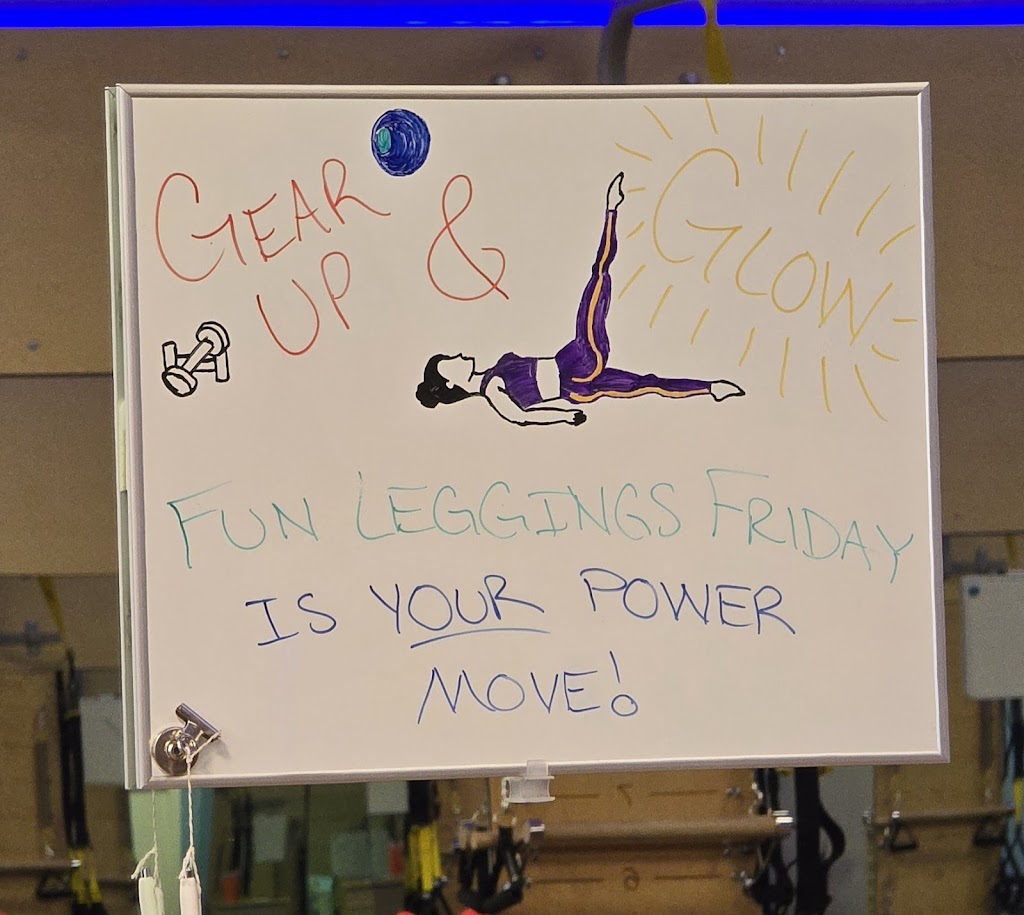 GEAR
UP
&
GLOW
FUN LEGGINGS FRIDAY
IS YOUR POWER
MOVE!
7
6